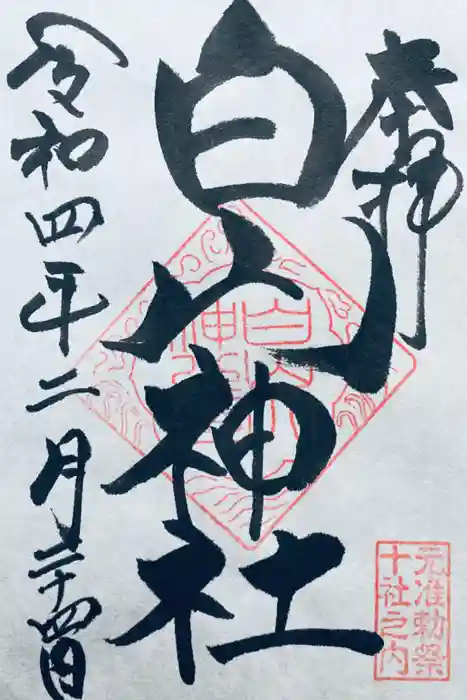 奉拝
白山神社
令和四年二月二十四日
白山神社
元准勅祭
十社之内